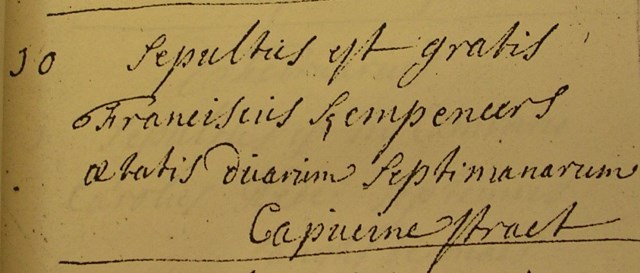 30 Sepultus est gratis
Franciscus Sempeneers
ætatis duarum septimanarum
Capucine straet